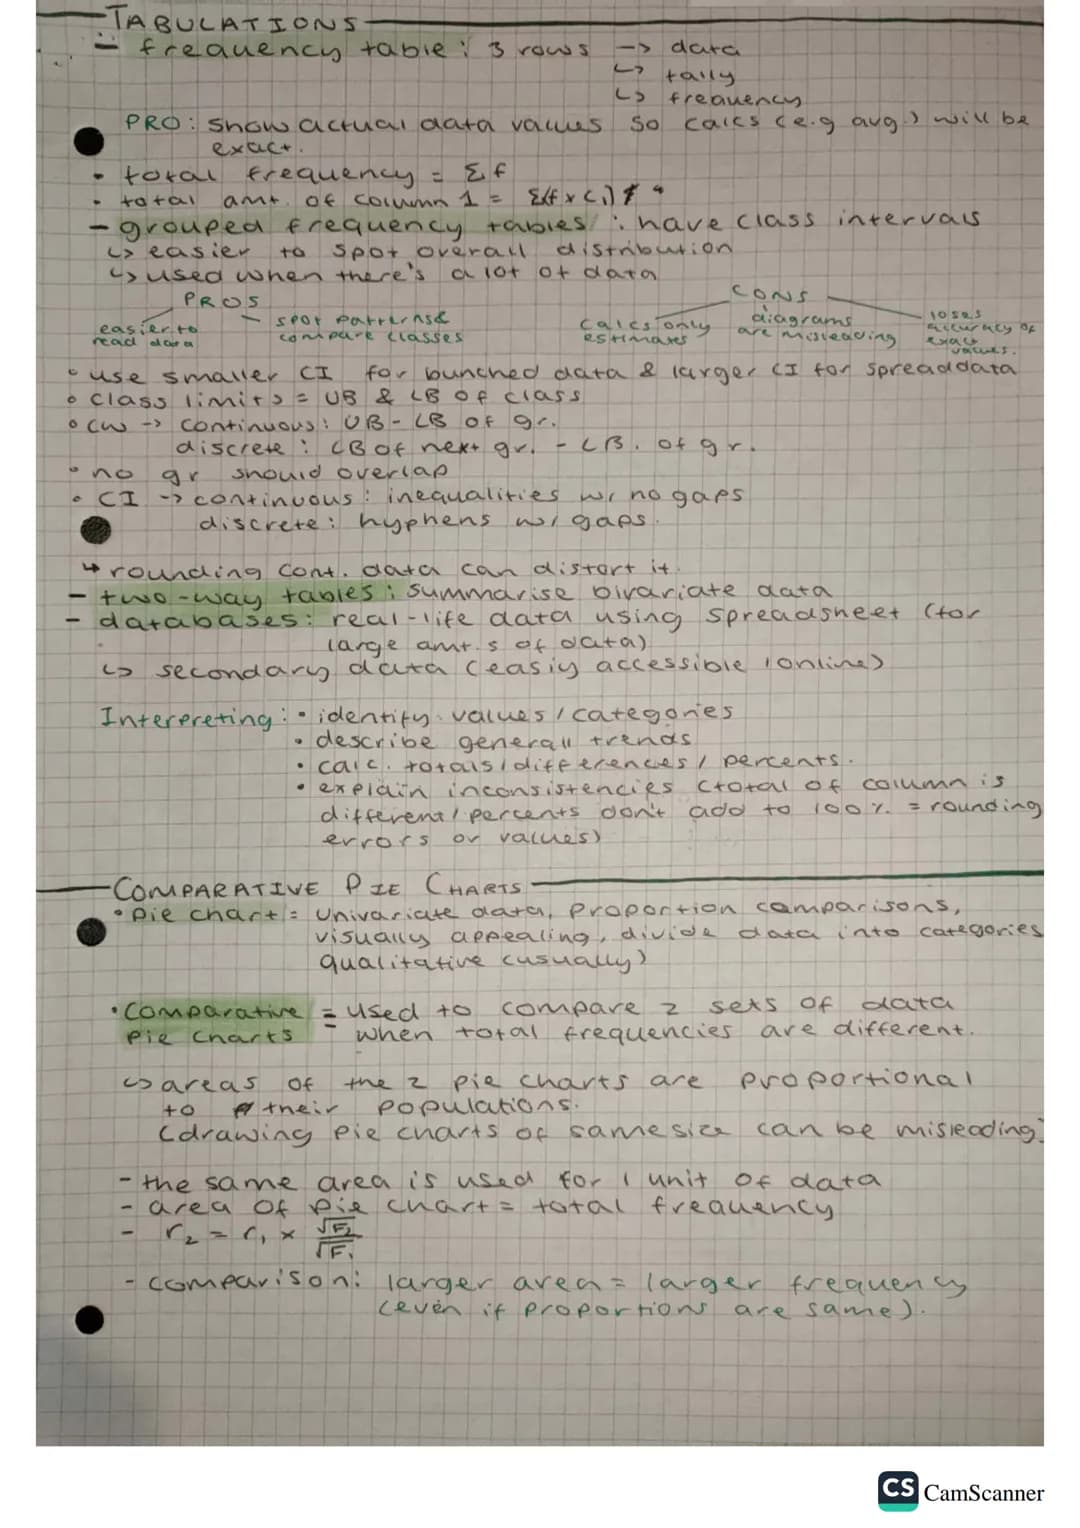 TABULATIONS
- frequency table : 3 rows → data
↳ tally
↳ frequency
PRO : show actual data values so calcs (e.g avg.) will be
exact.
• total frequency = Σf
• total amt. of column 1 = Σ(f x c1)
- grouped frequency tables : have class intervals
↳ easier to spot overall distribution
↳ used when there's a lot of data
PROS CONS
easier to read data
spot patterns & compare classes
calcs only estimates
diagrams are misleading
loses accuracy of exact values.
• use smaller CI for bunched data & larger CI for spread data
• class limits = UB & LB of class
• CW → continuous : UB - LB of gr.
discrete : LB of next gr. - LB. of gr.
• no gr should overlap
• CI → continuous : inequalities w/ no gaps
discrete : hyphens w/ gaps.
↳ rounding cont. data can distort it.
- two-way tables : summarise bivariate data
- databases : real-life data using spreadsheet (for
large amt.s of data)
↳ secondary data (easiy accessible / online)
Interpreting : • identify values / categories
• describe generall trends
• calc. totals / differences / percents.
• explain inconsistencies (total of column is
different / percents don't add to 100% = rounding
errors or values)
COMPARATIVE PIE CHARTS
• Pie chart = univariate data, proportion comparisons,
visually appealing, divide data into categories
qualitative (usually)
• Comparative = used to compare 2 sets of data
Pie Charts when total frequencies are different.
↳ areas of the 2 pie charts are proportional
to their populations.
(drawing pie charts of same size can be misleading)
- the same area is used for 1 unit of data
- area of pie chart = total frequency
- r₂ = r₁ × √F₂/√F₁
- comparison : larger area = larger frequency
(even if proportions are same).
CS CamScanner